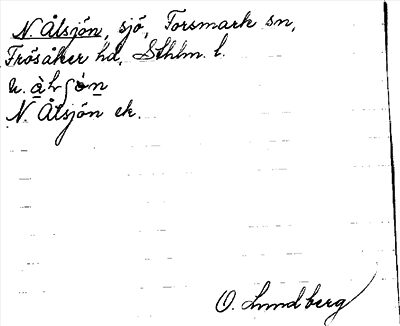 N. Ålsjön, sjö, Forsmark sn,
Frösåker hd, Sthlm. l.
u. àlʃön
N. Ålsjön ek.
O. Lundberg